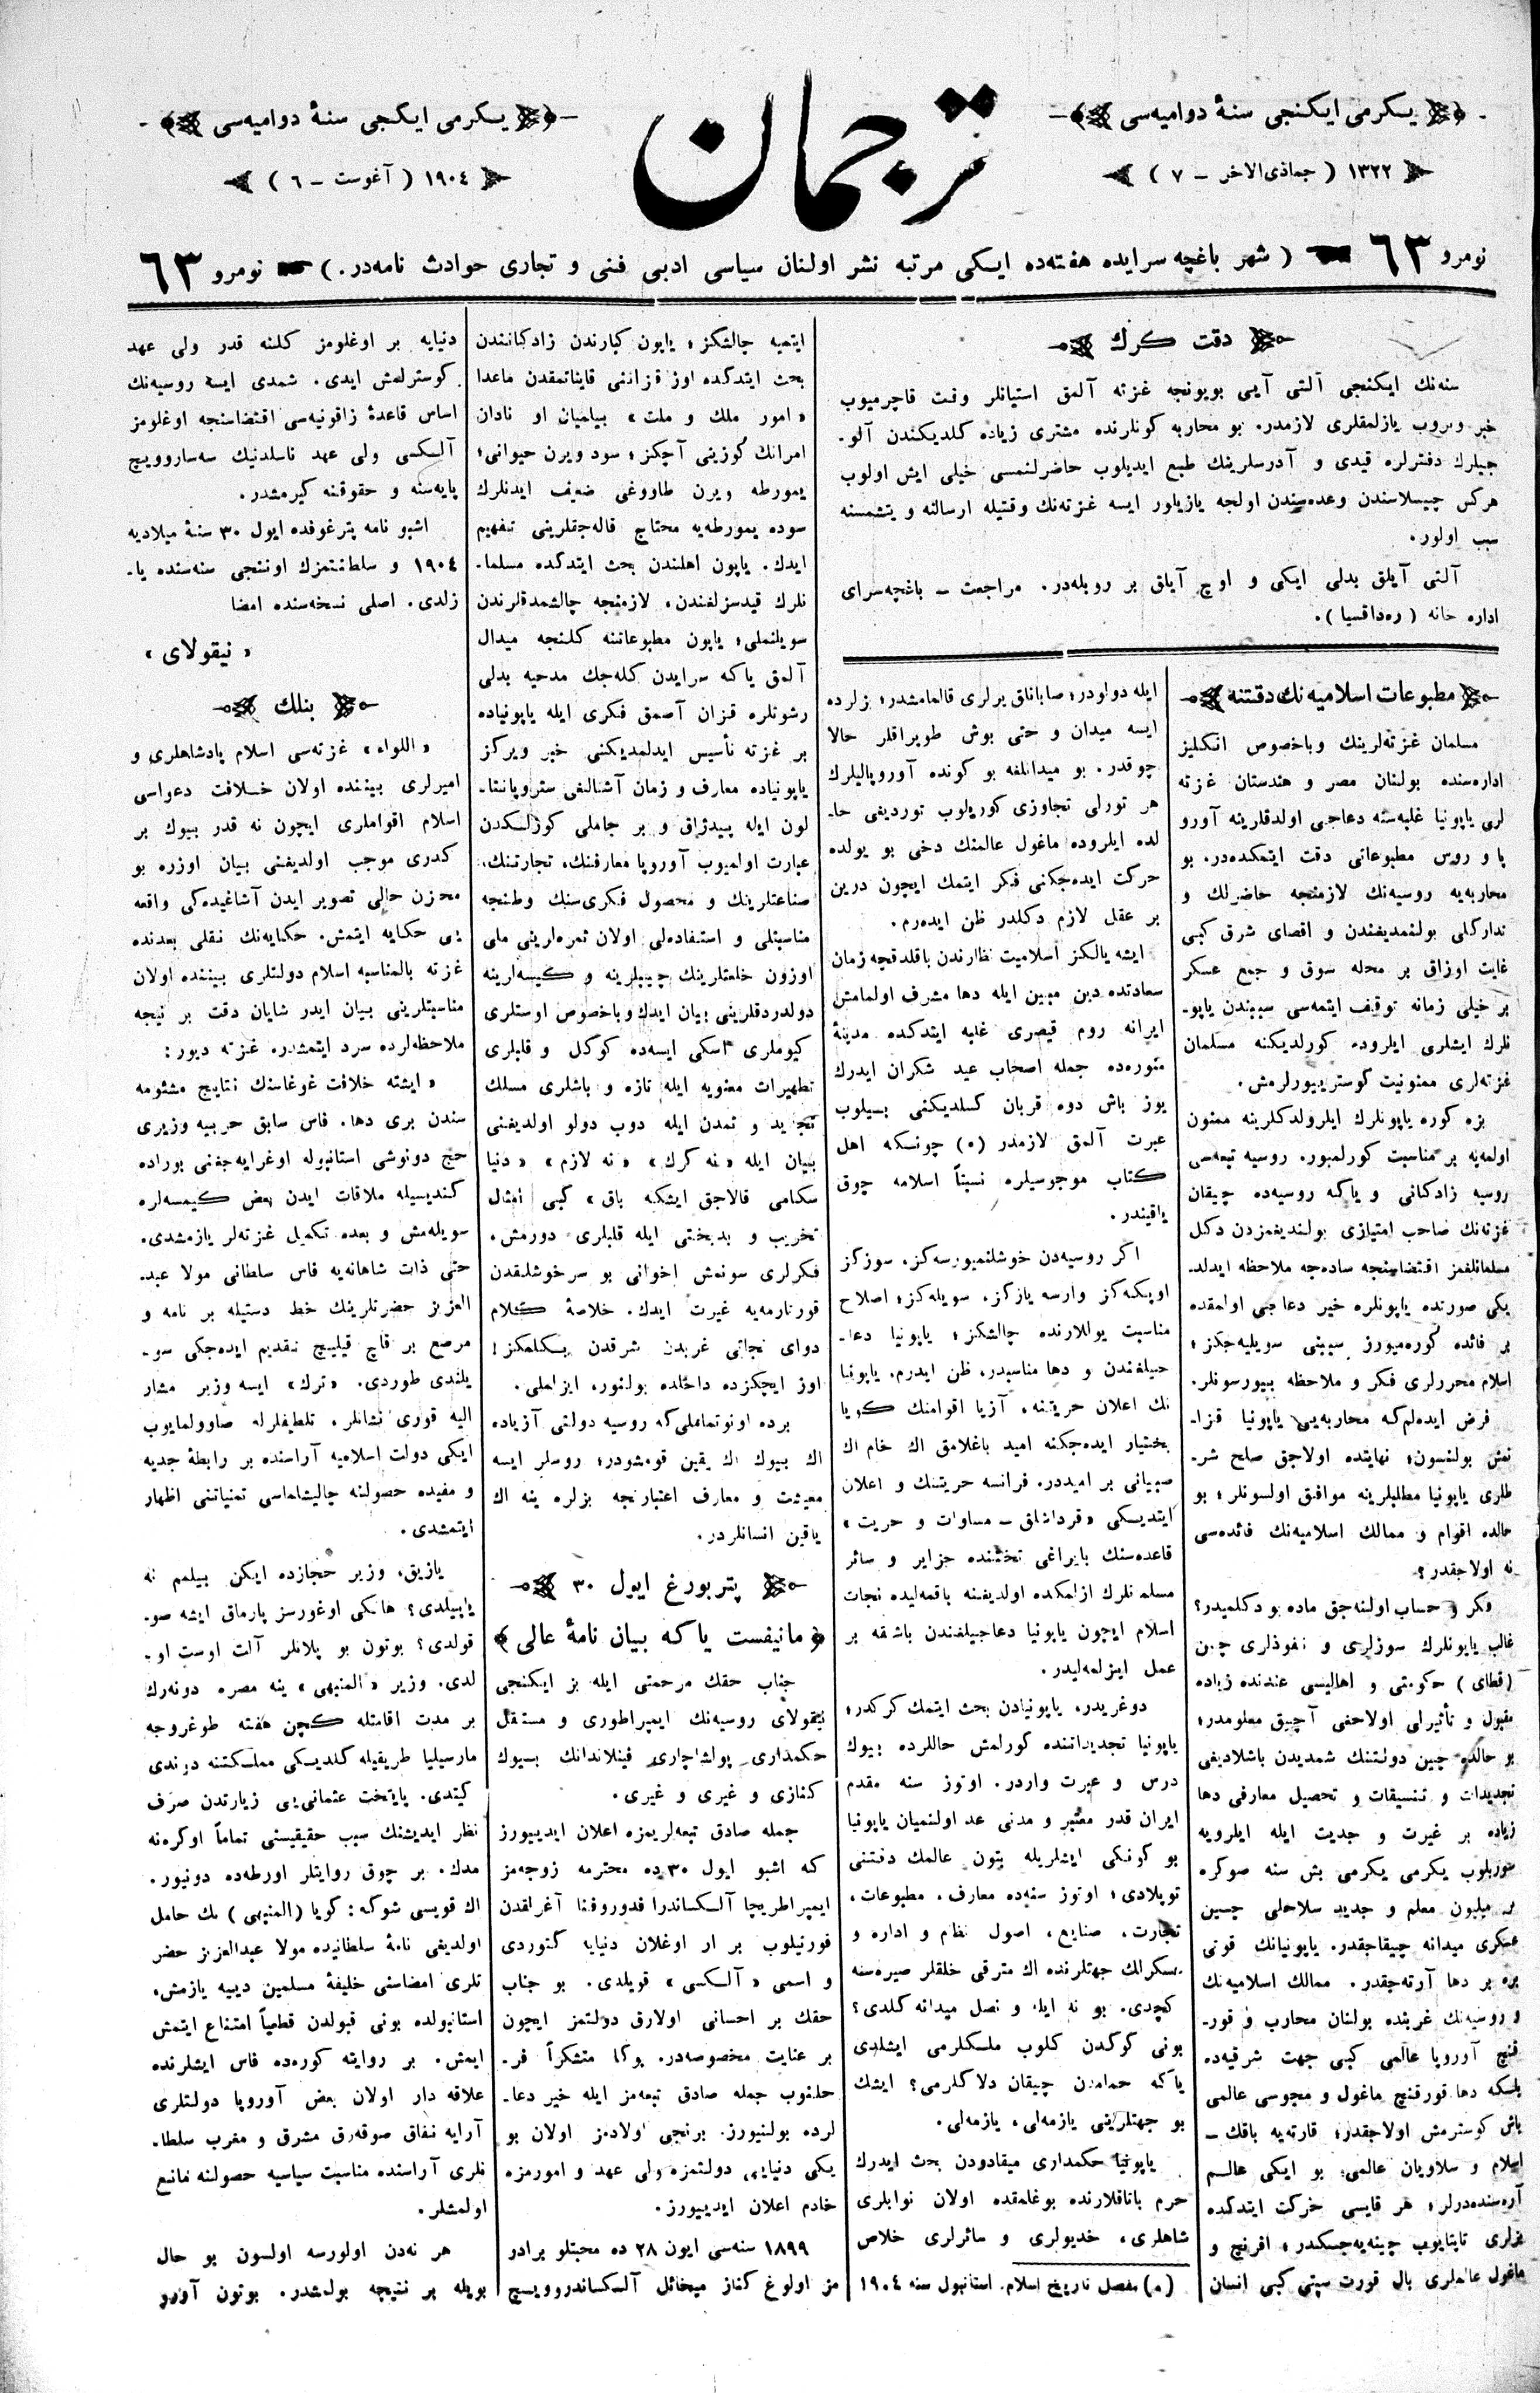 يكرمی ايكنجی سنۀ دواميه‌سی
١٣٢٢ ( جمادی‌الاخر ـ ٧ )
ترجمان
يكرمی ايكنجی سنۀ دواميه‌سی
١٩٠٤ ( آغوست ـ ٦ )
نومرو ٦٣ ( شهر باغچه سرايده هفته‌ده ايكی مرتبه نشر اولنان سياسی ادبی فنی و تجاری حوادث نامه‌در. ) نومرو ٦٣
دقت كرك
سنه‌نك ايكنجی آلتی آيی بويونجه غزته آلمق استيانلر وقت قاچرميوب
خبر ويروب يازلمقلری لازمدر. بو محاربه كونلرنده مشتری زياده كلديكندن آلو-
جيلرك دفترلره قيدی و آدرسلرينك طبع ايديلوب حاضرلنمسی خيلی ايش اولوب
هركس چيسلاسندن وعده‌سندن اولجه يازيلور ايسه غزته‌نك وقتيله ارسالنه و يتشمسنه
سبب اولور.
آلتی آيلق بدلی ايكی و اوچ آيلق بر روبله‌در. مراجعت ـ باغچه‌سرای
اداره خانه ( ره‌داقسيا ).
مطبوعات اسلاميه‌نك دقتنه
مسلمان غزته‌لرينك وباخصوص انكليز
اداره‌سنده بولنان مصر و هندستان غزته
لری ياپونيا غلبه‌سنه دعاجی اولدقلرينه آورو
پا و روس مطبوعاتی دقت ايتمكده‌در. بو
محاربه‌يه روسيه‌نك لازمنجه حاضرلك و
تداركلی بولنمديغندن و اقصای شرق كبی
غايت اوزاق بر محله سوق و جمع عسكر
بر خيلی زمانه توقيف ايتمه‌سی سببندن ياپو-
نلرك ايشلری ايلروده كورلديكنه مسلمان
غزته‌لری ممنونيت كوستريبورلرمش.
بزه كوره ياپونلرك ايلرولدكلرينه ممنون
اولمه‌يه بر مناسبت كورلمبور. روسيه تبعه‌سی
روسيه زادكانی و ياكه روسيه‌ده چيقان
غزته‌نك صاحب امتيازی بولنديغمزدن دكل
مسلمانلغمز اقتضاسنجه ساده‌جه ملاحظه ايدلد-
يكی صورتده ياپونلره خير دعاجی اولمقده
بر فائده كوره‌ميورز سببنی سويليه‌جكز؛
اسلام محررلری فكر و ملاحظه بيورسونلر.
فرض ايده‌لم‌كه محاربه‌يی ياپونيا قزا-
نمش بولنسون؛ نهايتده اولاجق صلح شر-
طلری ياپونيا مطلبلرينه موافق اولسونلر؛ بو
حالده اقوام و ممالك اسلاميه‌نك فائده‌سی
نه اولاجقدر؟
فكر و حساب اولنه‌جق ماده بو دكلميدر؟
غالب ياپونلرك سوزلری و نفوذلری چين
(قطای) حكومتی و اهاليسی عندنده زياده
مقبول و تأثيرلی اولاحغی آچيق معلومدر؛
بو حالده چين دولتنك شمديدن باشلاديغی
تجديدات و تنسيقات و تحصيل معارفی دها
زياده بر غيرت و جديت ايله ايلرويه
سوريلوب يكرمی يكرمی بش سنه صوكره
بر ميليون معلم و جديد سلاحلی چين
عسكری ميدانه چيقاجقدر. ياپونيانك قوتی
بره بر دها آرته‌جقدر. ممالك اسلاميه‌نك
و روسيه‌نك غربنده بولنان محارب و قور-
قنچ آوروپا عالمی كبی جهت شرقيه‌ده
بلكه دها قورقنچ ماغول و مجوسی عالمی
باش كوسترمش اولاجقدر؛ قارته‌يه باقك ـ
اسلام و سلاويان عالمی بو ايكی عالم
آره‌سنده‌درلر؛ هر قايسی حركت ايتدكده
بزلری تاپتايوب چينه‌يه‌جكدر؛ افرنج و
ماغول عالملری بال قورت سپتی كبی انسان
ايله دولودر؛ صاباناق يرلری قالمامشدر؛ بزلرده
ايسه ميدان و حتی بوش طوپراقلر حالا
چوقدر. بو ميدانلغه بو كونده آوروپاليلرك
هر تورلی تجاوزی كوريلوب تورديغی حا-
لده ايلروده ماغول عالمنك دخی بو يولده
حركت ايده‌جكنی فكر ايتمك ايچون درين
بر عقل لازم دكلدر ظن ايده‌رم.
ايشه يالكز اسلاميت نظارندن باقلدقچه زمان
سعادتده دين مبين ايله دها مشرف اولمامش
ايرانه روم قيصری غلبه ايتدكده مدينۀ
منوره‌ده جمله اصحاب عيد شكران ايدرك
يوز باش دوه قربان كسلديكنی بيلوب
عبرت آلمق لازمدر (٥) چونكه اهل
كتاب موجوسيلره نسبتاً اسلامه چوق
ياقيندر.
اكر روسيه‌دن خوشلنميورسه‌كز، سوزكز
اوپكه‌كز وارسه يازكز. سويله‌كز؛ اصلاح
مناسبت يوللارنده چالشكز؛ ياپونيا دعا-
جيلغندن و دها مناسبدر، ظن ايدرم. ياپونيا
نك اعلان حريتنه، آزيا اقوامنك كويا
بختيار ايده‌جكنه اميد باغلامق اك خام اك
صبيانی بر اميددر. فرانسه حريتنك و اعلان
ايتديكی «قرداشلق ـ مساوات و حريت»
قاعده‌سنك بايراغی تختنده جزاير و سائر
مسلمانلرك ازلمكده اولديغنه باقمه‌ليده نجات
اسلام ايچون ياپونيا دعاجيلغندن باشقه بر
عمل ايزلمه‌ليدر.
دوغريدر، ياپونيادن بحث ايتمك كركدر؛
ياپونيا تجديداتنده كورلمش حاللرده بيوك
درس و عبرت واردر. اوتوز سنه مقدم
ايران قدر معتبر و مدنی عد اولنميان ياپونيا
بو كونكی ايشلريله بتون عالمك دقتنی
توپلادی؛ اوتوز سنه‌ده معارف، مطبوعات،
تجارت، صنايع، اصول نظام و اداره و
عسكرلك جهتلرنده اك مترقی خلقلر صيره‌سنه
كچدی. بو نه ايله و نصل ميدانه كلدی؟
بونی كوكدن كلوب ملكلرمی ايشلدی
ياكه حمامدن چيقان دلاكلرمی؟ ايشك
بو جهتلرينی يازمه‌لی، يازمه‌لی.
ياپونيا حكمداری ميقادودن بحث ايدرك
حرم باتاقلارنده بوغلمقده اولان نوابلری
شاهلری، خديولری و سائرلری خلاص
(٥) مفصل تاريخ اسلام. استانبول سنه ١٩٠٤
ايتميه چالشكز؛ ياپون كبارندن زادكانندن
بحث ايتدكده اوز قزاننی قايناتمقدن ماعدا
«امور ملك و ملت» بيلميان او نادان
امرانك كوزينی آچكز؛ سود ويرن حيوانی؛
يمورطه ويرن طاووغی ضعيف ايدنلرك
سوده يمورطه‌يه محتاج قاله‌جقلرينی تفهيم
ايدك. ياپون اهلندن بحث ايتدكده مسلما-
نلرك قيدسزلغندن، لازمنجه چالشمدقلرندن
سويلنملی؛ ياپون مطبوعاتنه كلنجه ميدال
آلمق ياكه سرايدن كله‌جك مدحيه بدلی
رشوتلره قزان آصمق فكری ايله ياپونياده
بر غزته تأسيس ايدلمديكنی خبر ويركز
ياپونياده معارف و زمان آشنالغی ستروپانتا-
لون ايله پيدژاق و بر جاملی كوزلكدن
عبارت اولميوب آوروپا معارفنك، تجارتنك،
صناعتلرينك و محصول فكری‌سنك وطنجه
مناسبتلی و استفاده‌لی اولان ثمره‌لرينی ملی
اوزون خلعتلرينك جيبلرينه و كيسه‌لرينه
دولدردقلرينی بيان ايدك وباخصوص اوستلری
كيوملری اسكی ايسه‌ده كوكل و قلبلری
تطهيرات معنويه ايله تازه و باشلری مسلك
تجديد و تمدن ايله دوپ دولو اولديغنی
بيان ايله «نه كرك» «نه لازم» «دنيا
سكامی قالاجق ايشكنه باق» كبی امثال
تخريب و بدبختی ايله قلبلری دورمش،
فكرلری سونمش اخوانی بو سرخوشلقدن
قورتارمه‌يه غيرت ايدك. خلاصۀ كلام
دوای نجاتی غربدن شرقدن بكلمكز!
اوز ايچكزده داخلده بولنور، ايزلملی.
برده اونوتماملی‌كه روسيه دولتی آزياده
اك بيوك اك يقين قومشودر؛ روسلر ايسه
معيشت و معارف اعتبارنجه بزلره ينه اك
ياقين انسانلردر.
پتربورغ ايول ٣٠
﴿ مانيفست ياكه بيان نامۀ عالی ﴾
جناب حقك مرحمتی ايله بز ايكنجی
نيقولای روسيه‌نك ايمپراطوری و مستقل
حكمداری پولشاچاری فينلاندانك بيوك
كنازی و غيری و غيری.
جمله صادق تبعه‌لريمزه اعلان ايدييورز
كه اشبو ايول ٣٠ده محترمه زوجه‌مز
ايمپراطريچا آلكساندرا فدوروفنا آغرلقدن
قورتيلوب بر ار اوغلان دنيايه كتوردی
و اسمی «آلكسی» قويلدی. بو جناب
حقك بر احسانی اولارق دولتمز ايچون
بر عنايت مخصوصه‌در. بوكا متشكراً فر-
حلنوب جمله صادق تبعه‌مز ايله خير دعا-
لرده بولنيورز. برنجی اولادمز اولان بو
يكی دنيايی دولتمزه ولی عهد و امورمزه
خادم اعلان ايدييورز.
١٨٩٩ سنه‌سی ايون ٢٨ ده محبتلو برادر
مز اولوغ كناز ميخائل آلكساندروويچ
دنيايه بر اوغلومز كلنه قدر ولی عهد
كوسترلمش ايدی. شمدی ايسه روسيه‌نك
اساس قاعدۀ زاقونيه‌سی اقتضاسنجه اوغلومز
آلكسی ولی عهد ناسلدنيك سه‌ساروويچ
پايه‌سنه و حقوقنه كيرمشدر.
اشبو نامه پترغوفده ايول ٣٠ سنۀ ميلاديه
١٩٠٤ و سلطنتمزك اوننجی سنه‌سنده يا-
زلدی. اصلی نسخه‌سنده امضا
« نيقولای »
بنلك
«اللواء» غزته‌سی اسلام پادشاهلری و
اميرلری بيننده اولان خلافت دعواسی
اسلام اقواملری ايچون نه قدر بيوك بر
كدری موجب اولديغنی بيان اوزره بو
محزن حالی تصوير ايدن آشاغيده‌كی واقعه
يی حكايه ايتمش. حكايه‌نك نقلی بعدنده
غزته بالمناسبه اسلام دولتلری بيننده اولان
مناسبتلرينی بيان ايدر شايان دقت بر نيجه
ملاحظه‌لرده سرد ايتمشدر. غزته ديور:
«ايشته خلافت غوغاسنك نتايج مشئومه
سندن بری دها. فاس سابق حربيه وزيری
حج دونوشی استانبوله اوغرايه‌جغنی بوراده
كنديسيله ملاقات ايدن بعض كيمسه‌لره
سويله‌مش و بعده تكميل غزته‌لر يازمشدی.
حتی ذات شاهانه‌يه فاس سلطانی مولا عبد-
العزيز حضرتلرينك خط دستيله بر نامه و
مرصع بر قاچ قيليج تقديم ايده‌جكی سو-
يلندی طوردی. «ترك» ايسه وزير مشار
اليه قوری نشانلر، تلطيفلرله صاوولمايوب
ايكی دولت اسلاميه آراسنده بر رابطۀ جديه
و مفيده حصولنه چاليشلماسی تمنياتنی اظهار
ايتمشدی.
يازيق، وزير حجازده ايكن بيلمم نه
ياپيلدی؟ هانكی اوغورسز پارماق ايشه صو-
قولدی؟ بوتون بو پلانلر آلت اوست او-
لدی. وزير «المنبهی» ينه مصره دونه‌رك
بر مدت اقامتله كچن هفته طوغروجه
مارسيليا طريقيله كلديكی مملكتنه دوندی
كيتدی. پايتخت عثمانی‌يی زيارتدن صرف
نظر ايديشنك سبب حقيقيسنی تماماً اوكره‌نه
مدك. بر چوق روايتلر اورطه‌ده دونيور.
اك قويسی شوكه: كويا (المنبهی) نك حامل
اولديغی نامۀ سلطانيده مولا عبدالعزيز حضر
تلری امضاسنی خليفۀ مسلمين دييه يازمش،
استانبولده بونی قبولدن قطعياً امتناع ايتمش
ايمش. بر روايته كوره‌ده فاس ايشلرنده
علاقه دار اولان بعض آوروپا دولتلری
آرايه نفاق صوقه‌رق مشرق و مغرب سلطا-
نلری آراسنده مناسبت سياسيه حصولنه مانع
اولمشلر.
هر نه‌دن اولورسه اولسون بو حال
بويله بر نتيجه بولمشدر. بوتون آورو